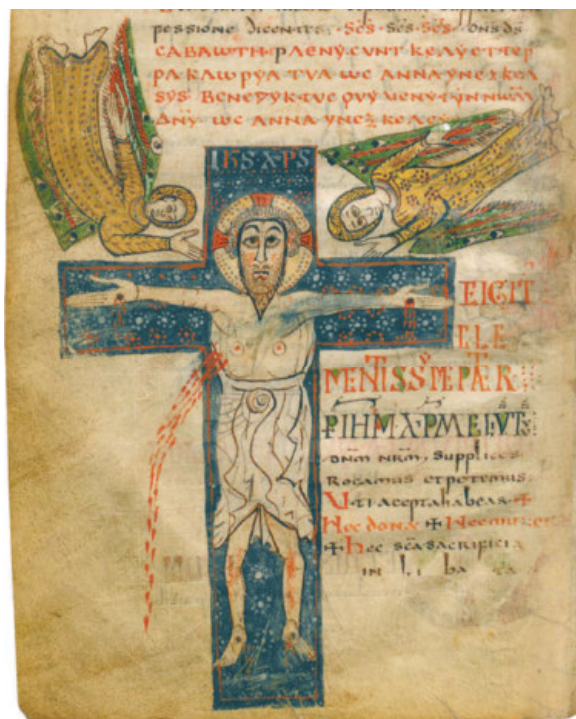 pessione dicentes· Scs· Scs· Scs· Dns ds
CABAωTH· PLENY CVNT KELY ET TEP
PA KLωPYA TVA ωC ANNA YN EXKOL
SYS BENEDYKTVC QVY VENYT YN NωM
DNY ωC ANNA YN EX KOL
IHS XPS
EIGIT
ELE
MENTISSYME PATER
P IHM XPM
dnm nrm, supplices
Rogamus et petemus
Uti accepta habeas +
Hec dona + Hec muner
+ Hec sca sacrificia
in l i ba ta